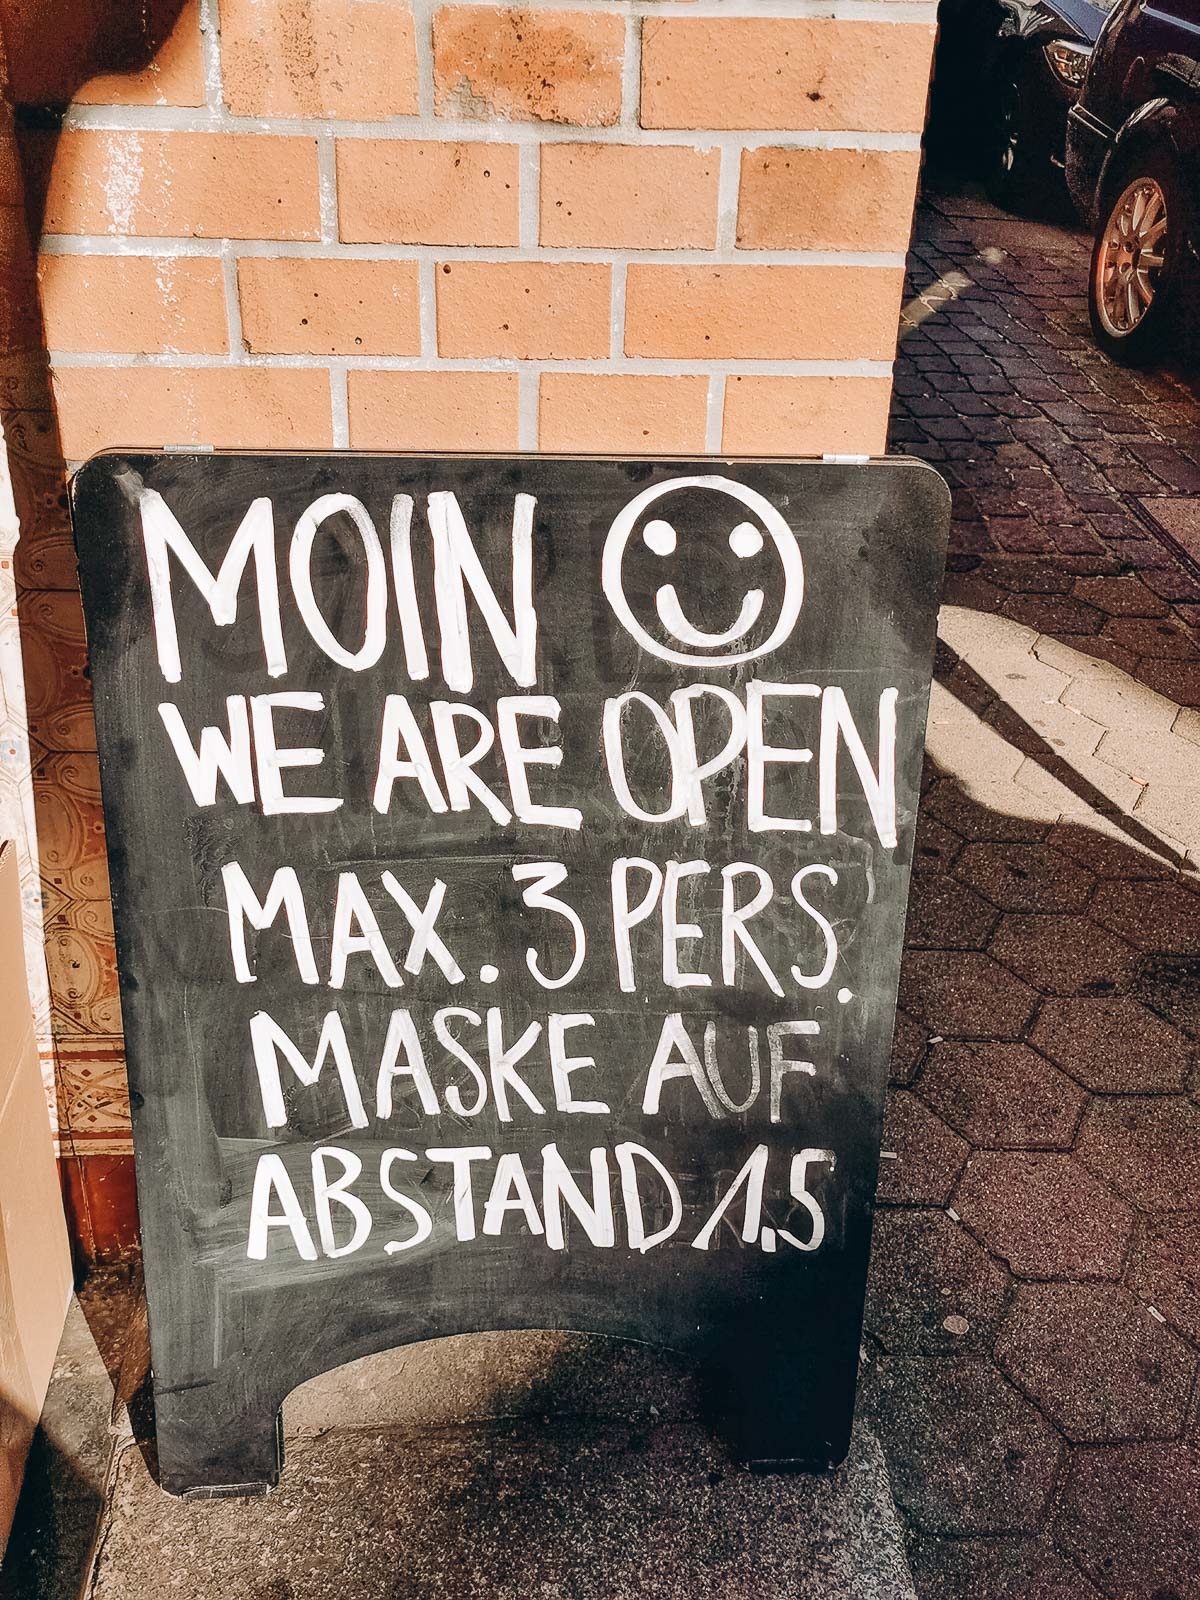 MOIN
WE ARE OPEN
MAX. 3 PERS.
MASKE AUF
ABSTAND 1,5